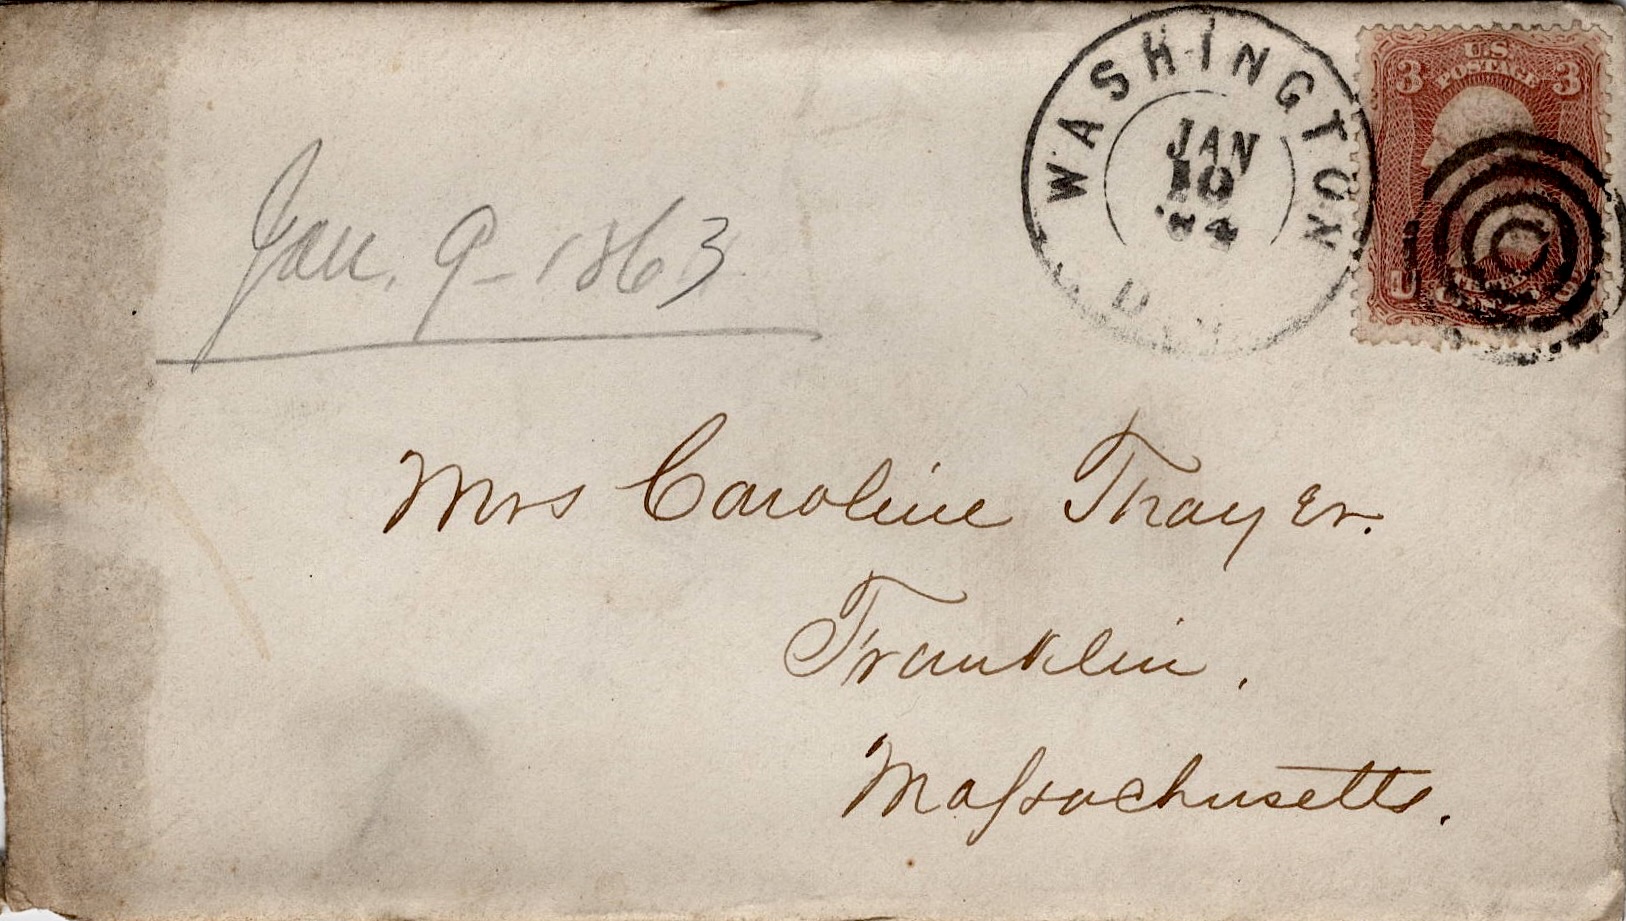 WASHINGTON
JAN
10
'64
U.S.
POSTAGE
3 3
Jan. 9 - 1863
Mrs Caroline Thayer.
Franklin,
Massachusetts.